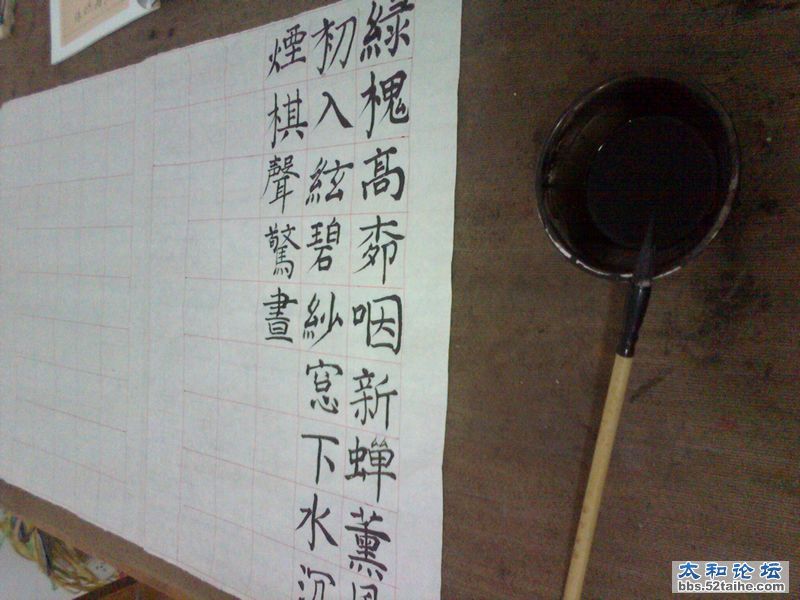 緑槐高桺咽新蝉薰
初入絃碧紗窓下水沉
煙棋聲驚晝
太和论坛
bbs.52taihe.com